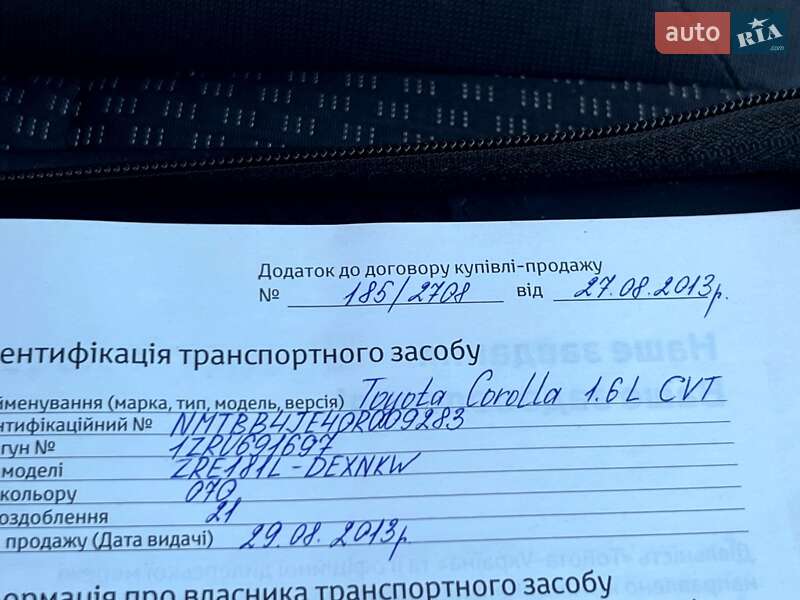 auto RIA .com
Додаток до договору купівлі-продажу
№ 185/2708 від 27.08.2013р.
ентифікація транспортного засобу
йменування (марка, тип, модель, версія) Toyota Corolla 1.6L CVT
нтифікаційний № NMTBB4JE40R009283
гун № 1ZRV691697
моделі ZRE181L-DEXNKW
кольору 070
оздоблення 21
продажу (Дата видачі) 29.08.2013р.
ормація про власника транспортного засобу